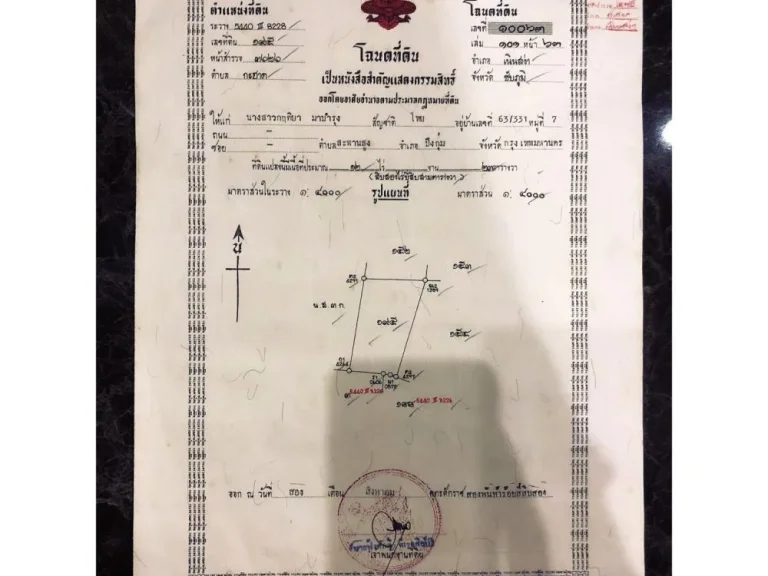 ตำแหน่งที่ดิน
ระวาง 5440 II 8228
เลขที่ดิน ๑๒๕
หน้าสำรวจ ๓๐๒๖
ตำบล กะฮาด
โฉนดที่ดิน
เลขที่ ๑๐๐๖๓
เล่ม ๑๐๑ หน้า ๖๓
อำเภอ เนินสง่า
จังหวัด ชัยภูมิ
โฉนดที่ดิน
เป็นหนังสือสำคัญแสดงกรรมสิทธิ์
ออกโดยอาศัยอำนาจตามประมวลกฎหมายที่ดิน
ให้แก่ นางสาวกฤติยา มาบำรุง สัญชาติ ไทย อยู่บ้านเลขที่ 63/331 หมู่ที่ 7
ถนน –
ซอย – ตำบล สะพานสูง อำเภอ บึงกุ่ม จังหวัด กรุงเทพมหานคร
ที่ดินแปลงนี้มีเนื้อที่ประมาณ ๑๒ ไร่ งาน ตารางวา
มาตราส่วนในระวาง ๑: ๔๐๐๐
รูปแผนที่
มาตราส่วน ๑: ๔๐๐๐
น
๑๕๒
๑๕๓
น.ส.๓ก.
๑๒๕
๑๕๔
5440 II 8228
5440 II 8228
ออก ณ วันที่ สอง เดือน สิงหาคม พุทธศักราช สองพันห้าร้อยสี่สิบสอง
เจ้าพนักงานที่ดิน